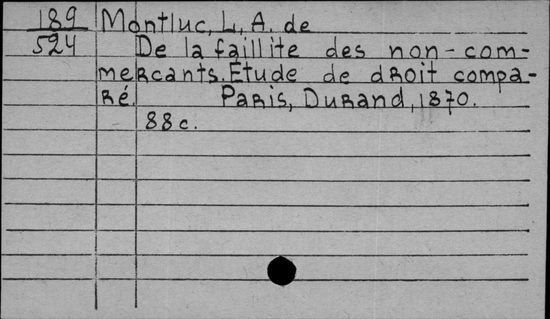 189 Montluc, L. A. de
524 De la faillite des non-com-
mercants. Étude de droit compa-
ré. Paris, Durand, 1870.
88 c.